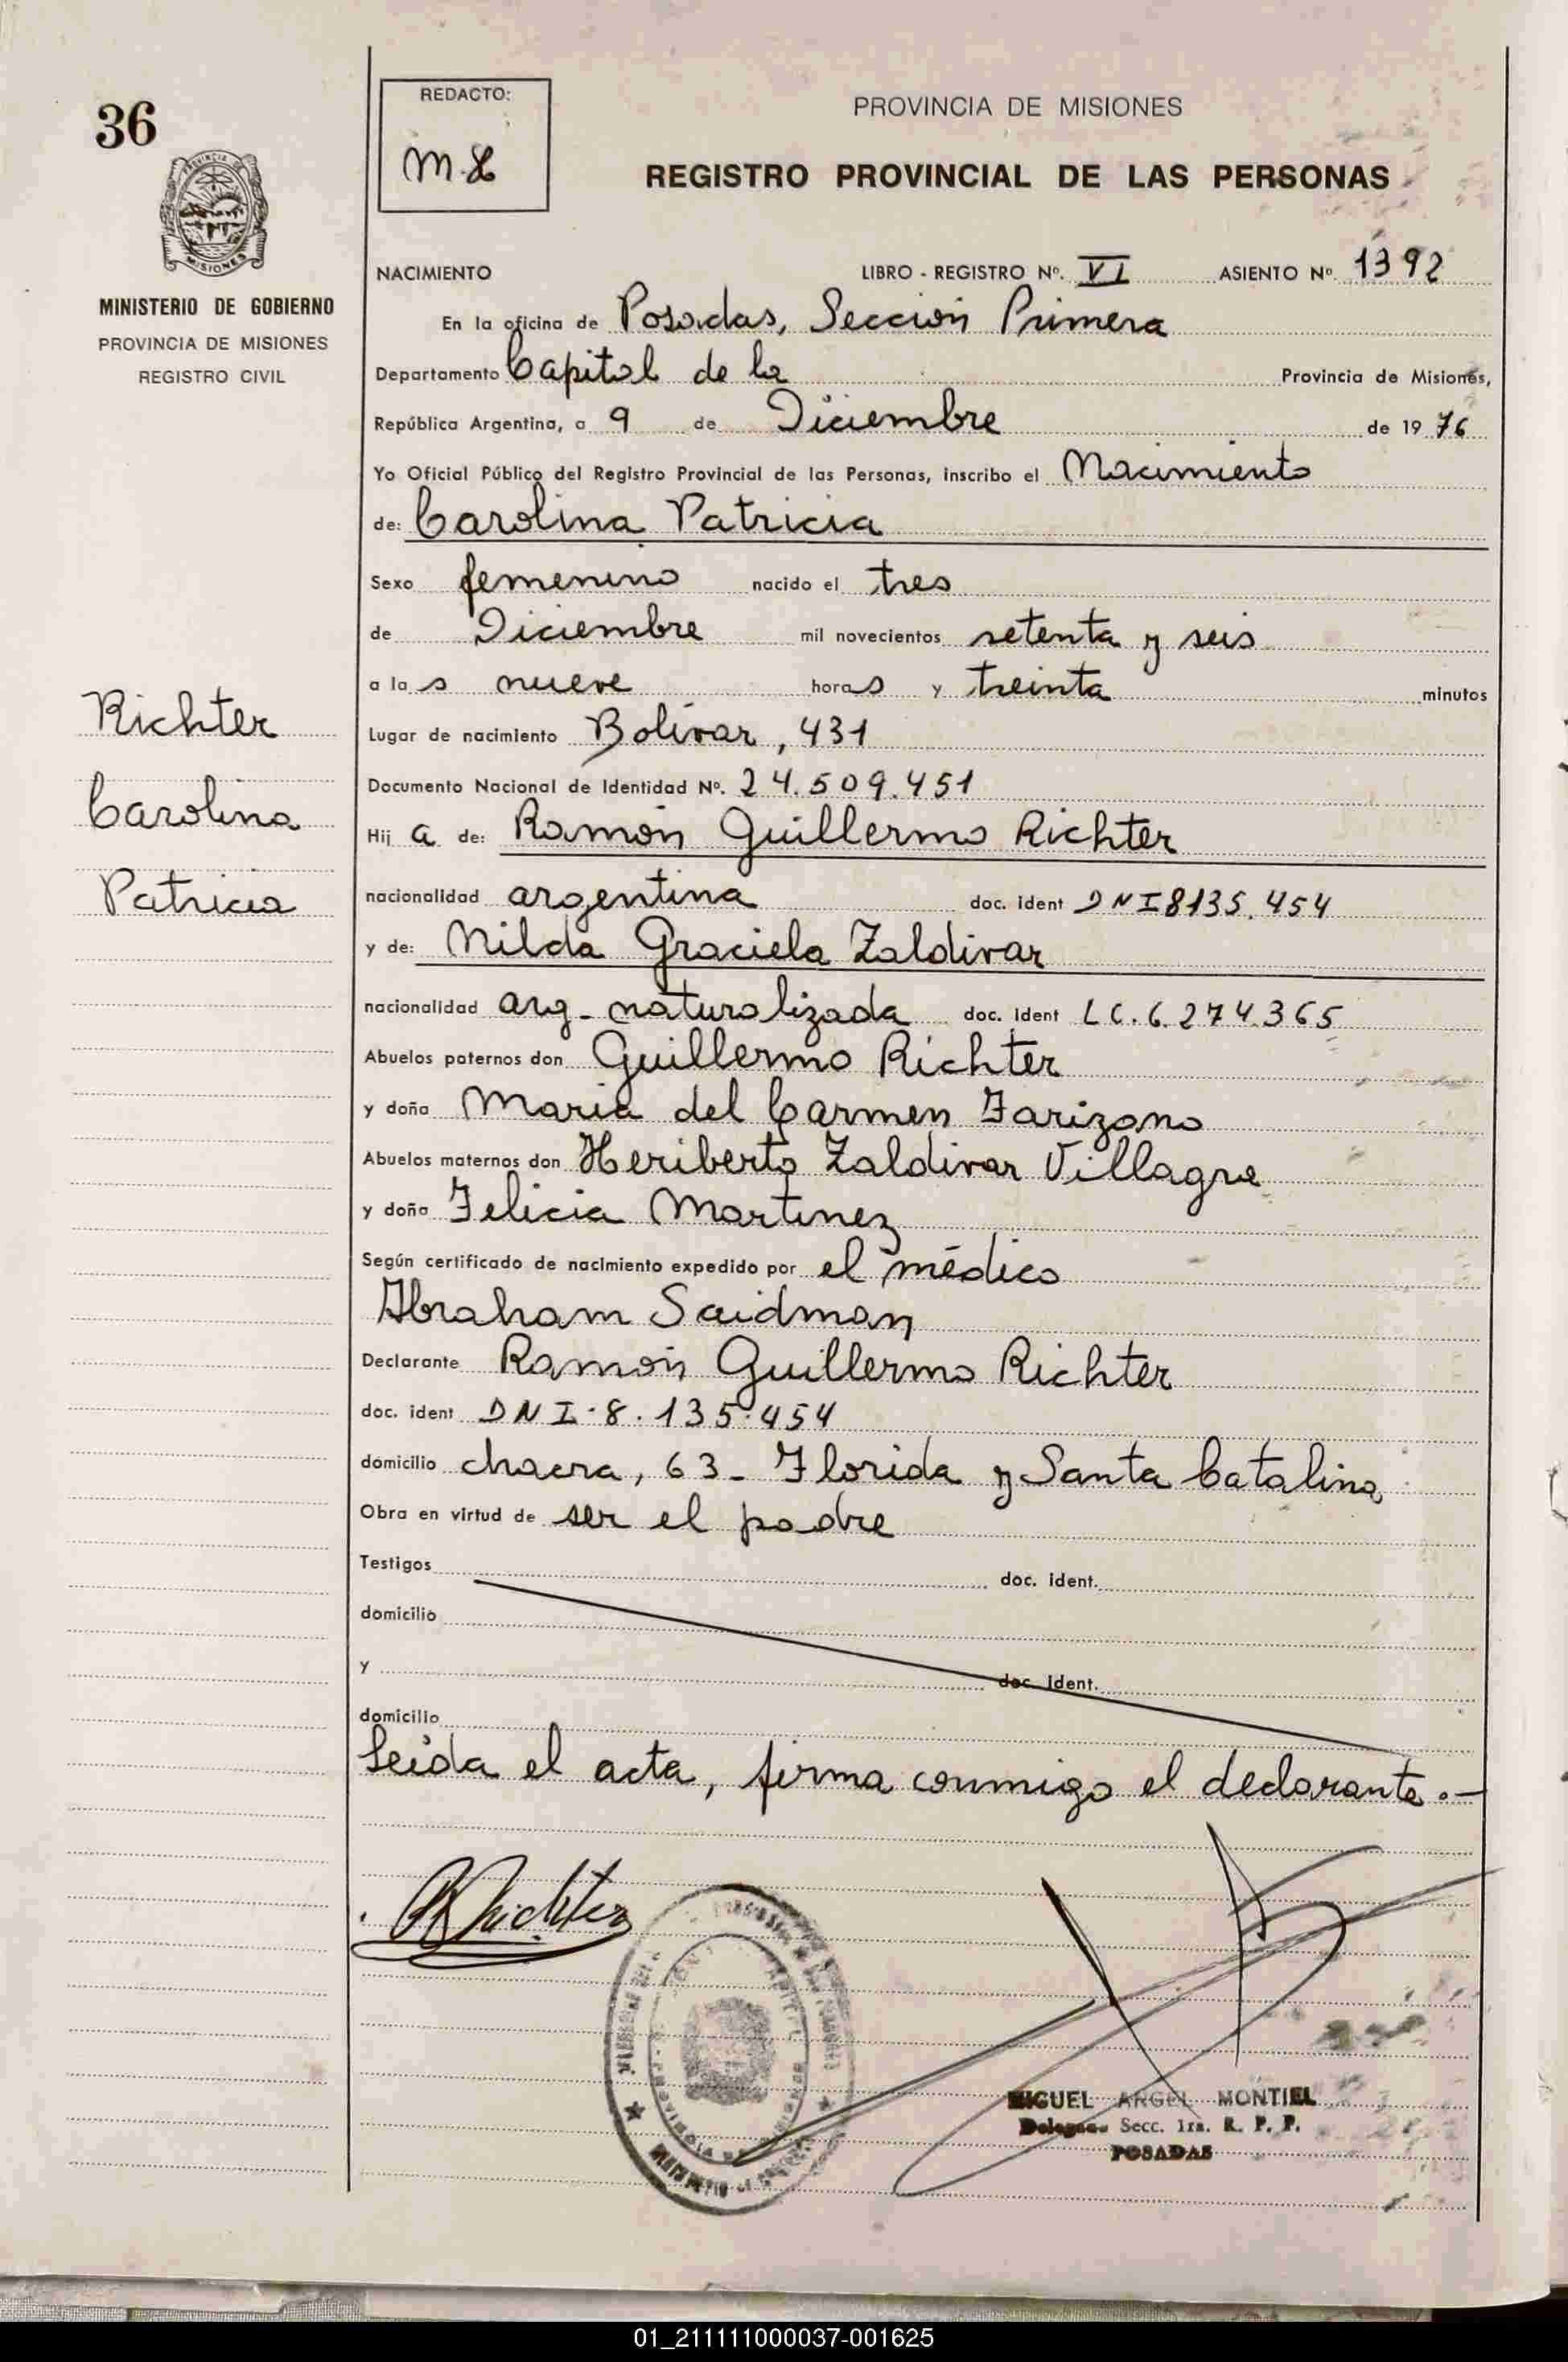 36
MINISTERIO DE GOBIERNO
PROVINCIA DE MISIONES
REGISTRO CIVIL
Richter
Carolina
Patricia
REDACTO:
PROVINCIA DE MISIONES
REGISTRO PROVINCIAL DE LAS PERSONAS
NACIMIENTO LIBRO - REGISTRO Nº. VI ASIENTO Nº. 1392
En la oficina de Posadas, Sección Primera
Departamento Capital de la Provincia de Misiones,
República Argentina, a 9 de Diciembre de 1976
Yo Oficial Público del Registro Provincial de las Personas, inscribo el Nacimiento
de: Carolina Patricia
Sexo femenino nacido el tres
de Diciembre mil novecientos setenta y seis
a las nueve horas y treinta minutos
Lugar de nacimiento Bolívar, 431
Documento Nacional de Identidad Nº. 24.509.451
Hija de: Ramón Guillermo Richter
nacionalidad argentina doc. ident DNI 8135.454
y de: Nilda Graciela Zaldivar
nacionalidad arg- naturalizada doc. ident LC.6.274.365
Abuelos paternos don Guillermo Richter
y doña Maria del Carmen Farizano
Abuelos maternos don Heriberto Zaldivar Villagra
y doña Felicia Martinez
Según certificado de nacimiento expedido por el médico
Abraham Saidman
Declarante Ramón Guillermo Richter
doc. ident DNI-8.135.454
domicilio chacra, 63- Florida y Santa Catalina
Obra en virtud de ser el padre
Testigos doc. ident.
domicilio
y doc. ident.
domicilio
Leida el acta, firma conmigo el declarante.-
Richter
MIGUEL ANGEL MONTIEL
Delegado Secc. 1ra. R. P. P.
POSADAS
01_211111000037-001625